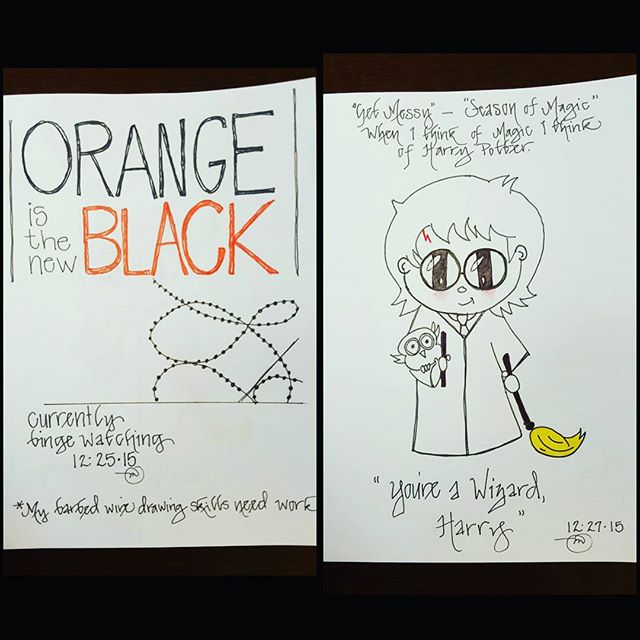 ORANGE
is
the
new
BLACK
currently
binge watching
12·25·15
*My barbed wire drawing skills need work
"Get Messy" – "Season of Magic"
When I think of Magic I think
of Harry Potter.
"You're a Wizard,
Harry"
12·27·15